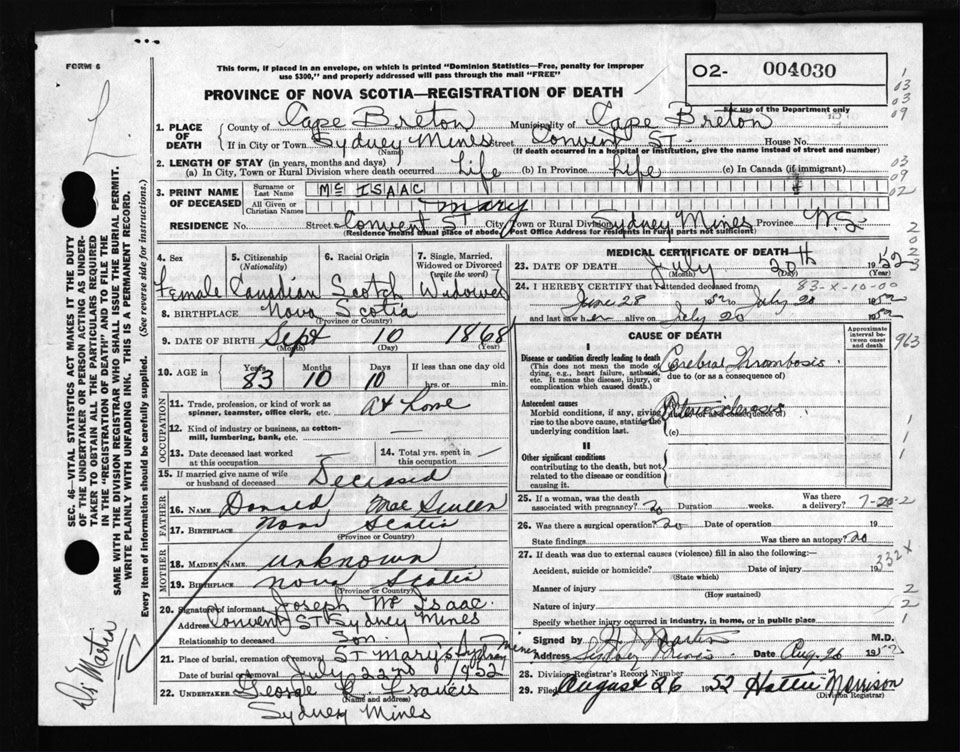 FORM 6
This form, if placed in an envelope, on which is printed "Dominion Statistics—Free, penalty for improper
use $300," and properly addressed will pass through the mail "FREE"
PROVINCE OF NOVA SCOTIA—REGISTRATION OF DEATH
02- 004030
For use of the Department only
1. PLACE OF DEATH
County of Cape Breton Municipality of Cape Breton
If in City or Town Sydney Mines Street Convent ST House No.
(Name) (If death occurred in a hospital or institution, give the name instead of street and number)
2. LENGTH OF STAY (in years, months and days)
(a) In City, Town or Rural Division where death occurred Life (b) In Province Life (c) In Canada (if immigrant)
3. PRINT NAME OF DECEASED
Surname or Last Name Mc ISAAC
All Given or Christian Names mary
RESIDENCE No. Street Convent S City Town or Rural Division Sydney Mines Province N.S
(Residence means usual place of abode. Post Office Address for residents in rural parts not sufficient)
4. Sex 5. Citizenship (Nationality) 6. Racial Origin 7. Single, Married, Widowed or Divorced (write the word)
Female Canadian Scotch Widowed
8. BIRTHPLACE Nova Scotia
(Province or Country)
9. DATE OF BIRTH Sept 10 1868
(Month) (Day) (Year)
10. AGE in Years Months Days If less than one day old
83 10 10 hrs. or min.
OCCUPATION
11. Trade, profession, or kind of work as spinner, teamster, office clerk, etc. At home
12. Kind of industry or business, as cotton-mill, lumbering, bank, etc.
13. Date deceased last worked at this occupation — 14. Total yrs. spent in this occupation —
15. If married give name of wife or husband of deceased Deceased
FATHER
16. Name Donald Mac
17. Birthplace Nova Scotia
(Province or Country)
MOTHER
18. Maiden Name unknown
19. Birthplace Nova Scotia
(Province or Country)
20. Signature of informant Joseph Mc Isaac
Address Convent ST Sydney Mines
Relationship to deceased Son
21. Place of burial, cremation or removal ST Mary's Sydney Mines
Date of burial or removal July 22nd 1952
22. UNDERTAKER George C. Francis
(Name and address)
Sydney Mines
MEDICAL CERTIFICATE OF DEATH
23. DATE OF DEATH July 20th 1952
(Month) (Day) (Year)
83-X-10-00
24. I HEREBY CERTIFY that I attended deceased from
June 28 1952 to July 20 1952
and last saw her alive on July 20 1952
CAUSE OF DEATH
Approximate interval between onset and death
I
Disease or condition directly leading to death
(This does not mean the mode of dying, e.g., heart failure, asthenia, etc. It means the disease, injury, or complication which caused death.)
Cerebral Thrombosis
due to (or as a consequence of)
Antecedent causes
Morbid conditions, if any, giving rise to the above cause, stating the underlying condition last.
Arteriosclerosis
due to (or as a consequence of)
(c)
II
Other significant conditions
contributing to the death, but not related to the disease or condition causing it.
25. If a woman, was the death associated with pregnancy? no Duration weeks. Was there a delivery?
7-20-2
26. Was there a surgical operation? no Date of operation 19
State findings Was there an autopsy? no
27. If death was due to external causes (violence) fill in also the following:—
Accident, suicide or homicide? Date of injury 19
(State which)
332X
Manner of injury
(How sustained)
Nature of injury
Specify whether injury occurred in industry, in home, or in public place
Signed by Martin M.D.
Address Sydney Mines Date Aug. 26 1952
28. Division Registrar's Record Number
29. Filed August 26 1952 Hattie Morrison
(Division Registrar)
SEC. 46—VITAL STATISTICS ACT MAKES IT THE DUTY
OF THE UNDERTAKER OR PERSON ACTING AS UNDER-
TAKER TO OBTAIN ALL THE PARTICULARS REQUIRED
IN THE "REGISTRATION OF DEATH" AND TO FILE THE
SAME WITH THE DIVISION REGISTRAR WHO SHALL ISSUE THE BURIAL PERMIT.
WRITE PLAINLY WITH UNFADING INK. THIS IS A PERMANENT RECORD.
Every item of information should be carefully supplied. (See reverse side for instructions.)
Dr. Martin
1
03
03
09
03
09
02
2
0
2
3
963
1
1
1
2
2
1